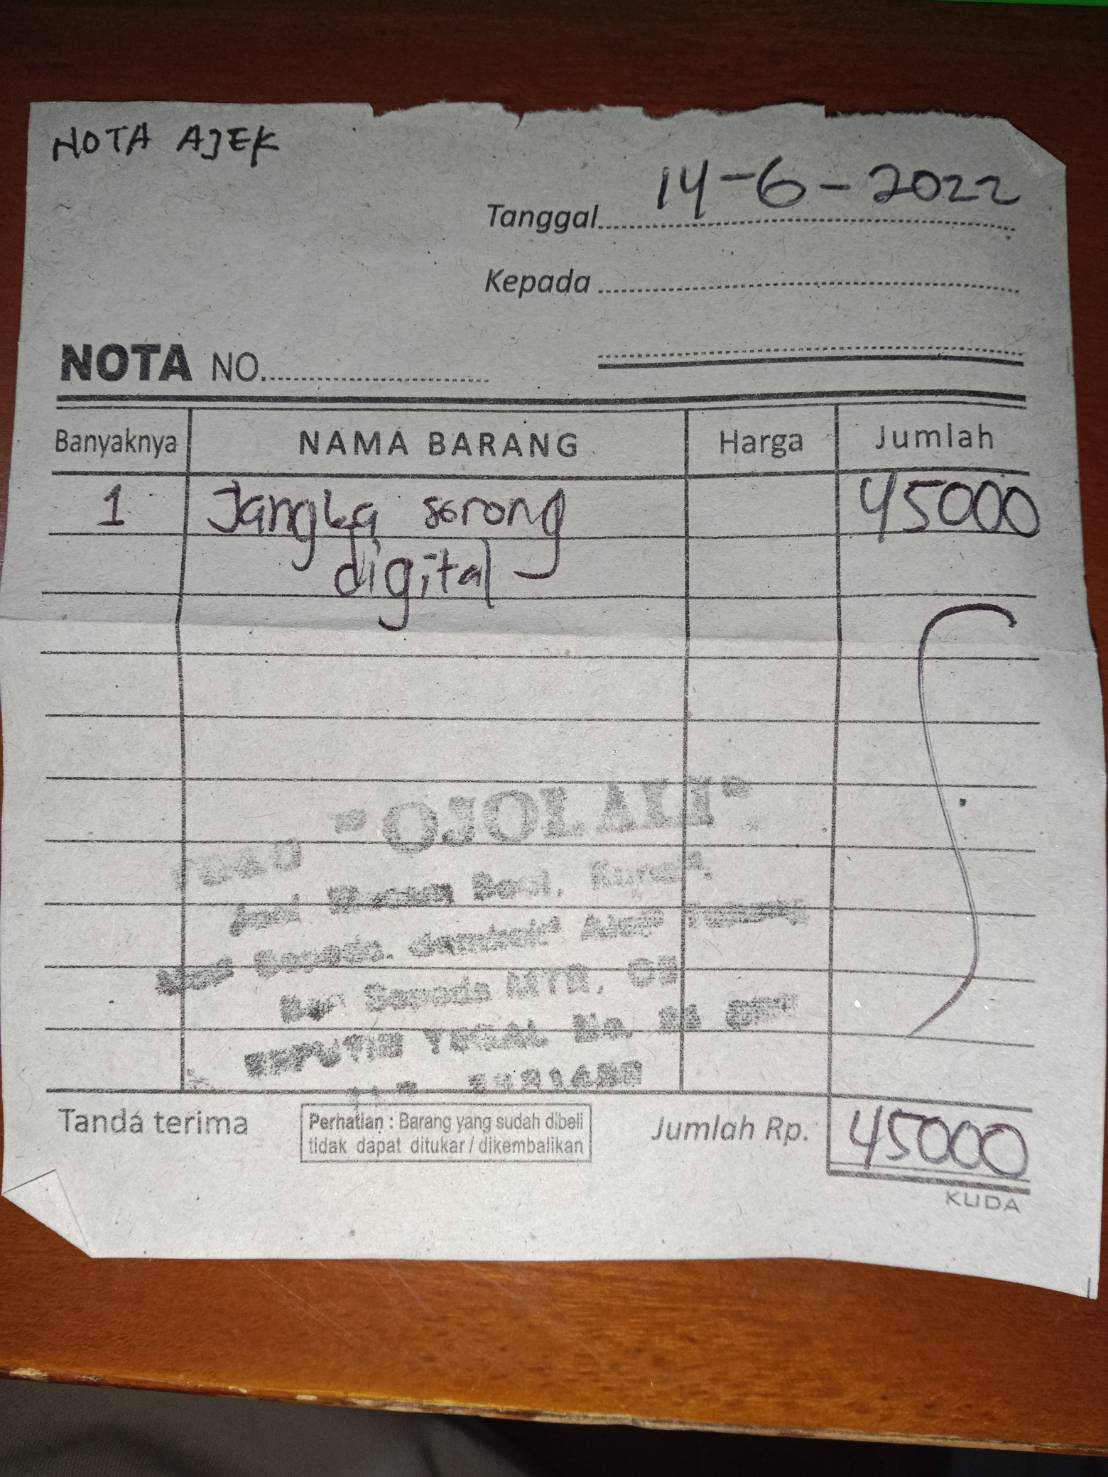 NOTA AJEK
Tanggal 14-6-2022
Kepada
NOTA NO.
Banyaknya NAMA BARANG Harga Jumlah
1 Jangka sorong 45000
digital
"OJOL ALI"
Sepeda
Ban Sepeda
No.
Tanda terima
Perhatian : Barang yang sudah dibeli
tidak dapat ditukar / dikembalikan
Jumlah Rp. 45000
KUDA